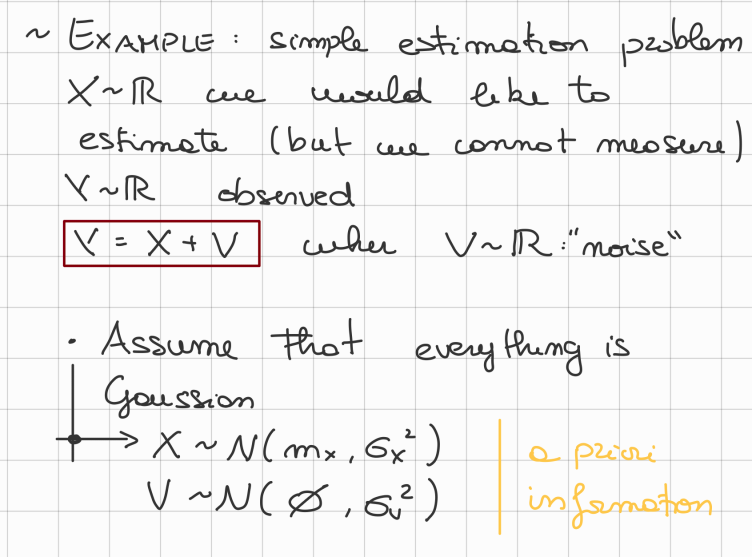 ~ EXAMPLE: simple estimation problem
X~ℝ we would like to
estimate (but we cannot measure)
Y~ℝ observed
Y = X + V when V~ℝ:"noise"
• Assume that everything is
Gaussian
X ~ N(mₓ, σₓ²) a priori
V ~ N(∅, σᵥ²) information